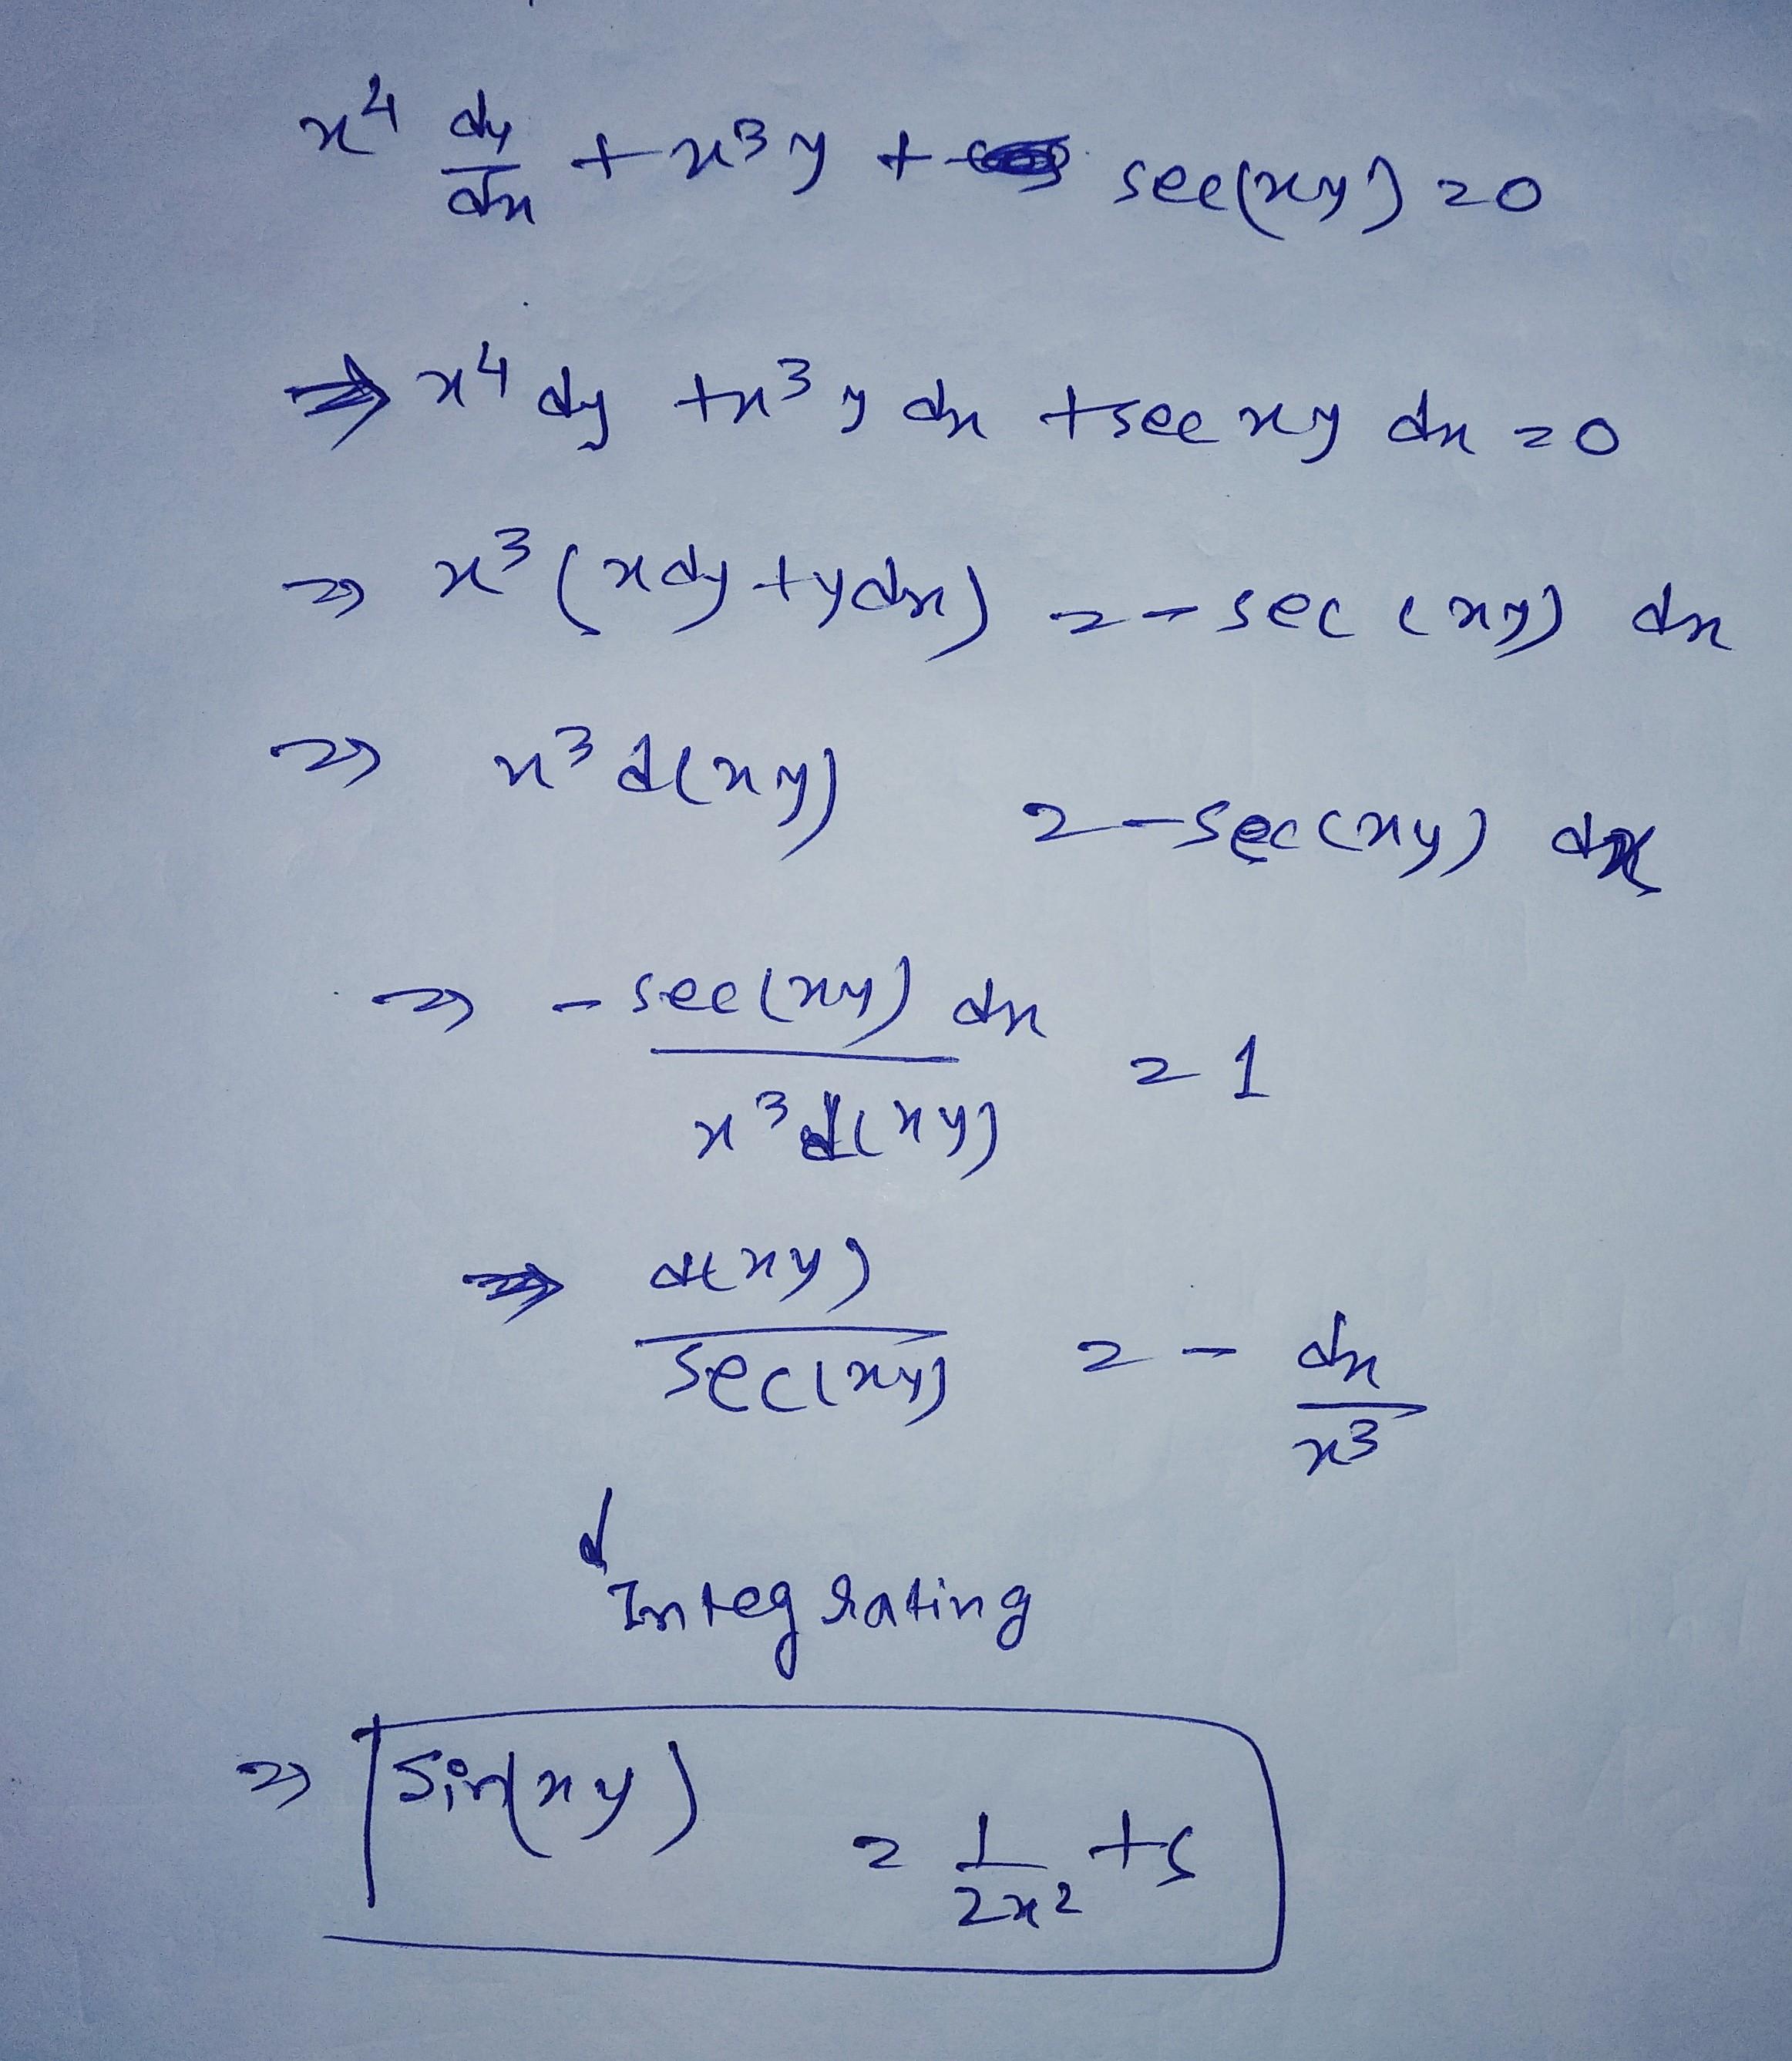 x⁴ dy/dx + x³y + sec(xy) = 0
⇒ x⁴ dy + x³ y dx + sec xy dx = 0
⇒ x³ (x dy + y dx) = - sec (xy) dx
⇒ x³ d(xy) = - sec(xy) dx
⇒ - sec(xy) dx / x³ d(xy) = 1
⇒ d(xy) / sec(xy) = - dx / x³
Integrating
⇒ sin(xy) = 1/2x² + c